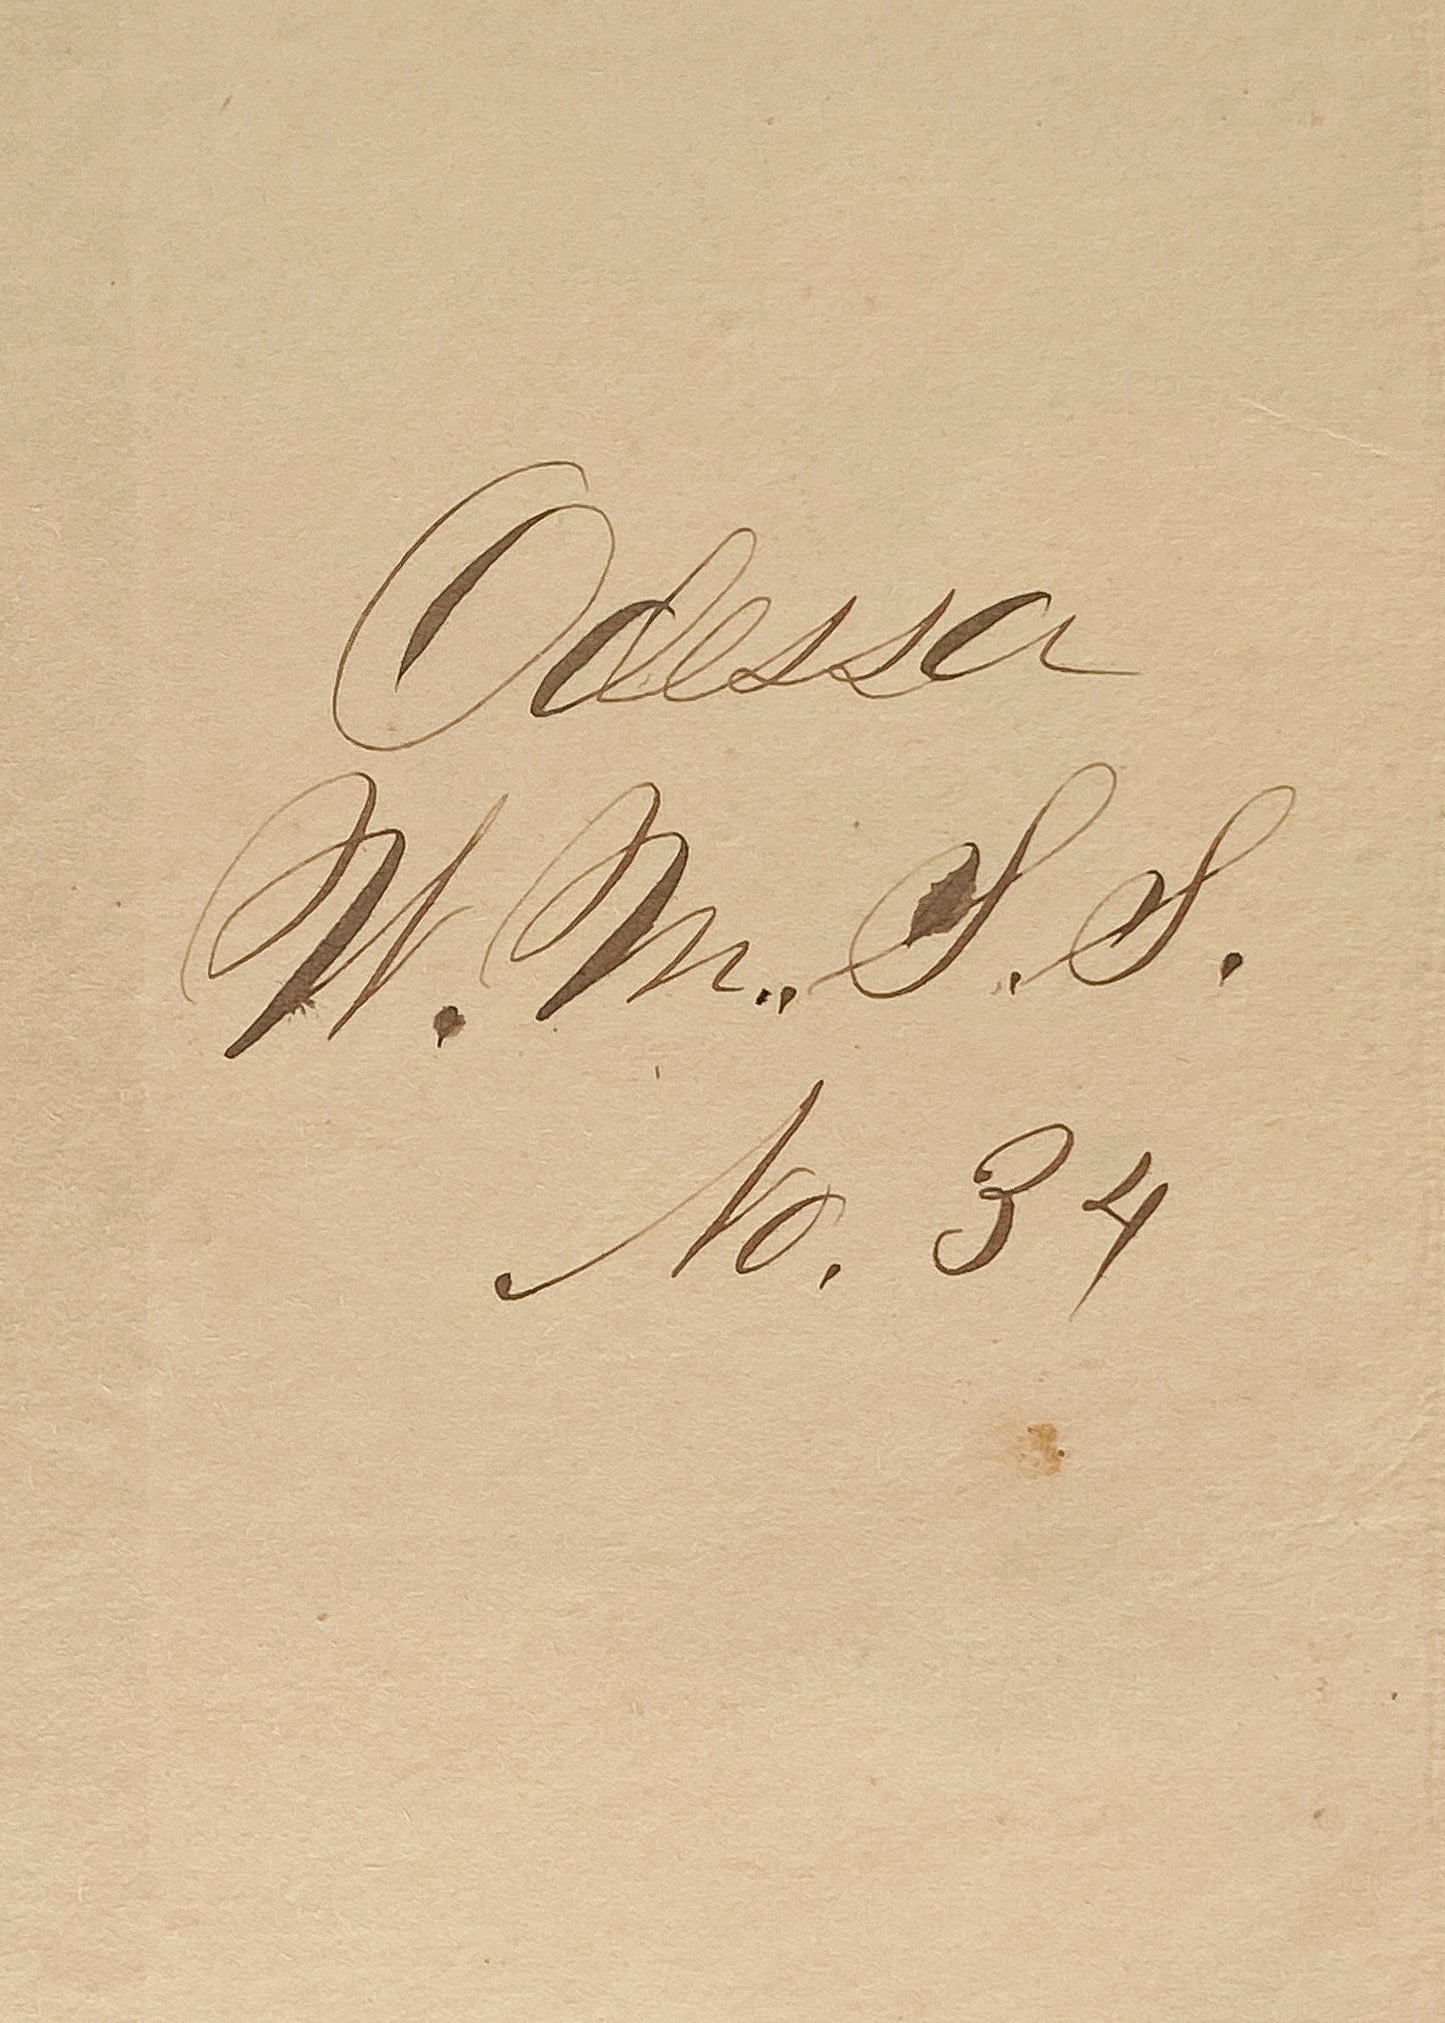 Odessa
W. M. S. S.
No. 34